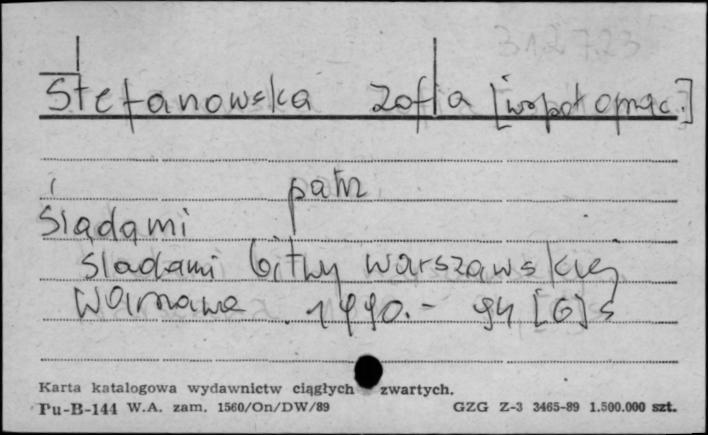 312723
Stefanowska Zofia [współoprac.]
patrz
Śladami
śladami bitwy warszawskiej
Warszawa 1990.- 94 [6] s
Karta katalogowa wydawnictw ciągłych zwartych.
Pu-B-144 W.A. zam. 1560/On/DW/89 GZG Z-3 3465-89 1.500.000 szt.